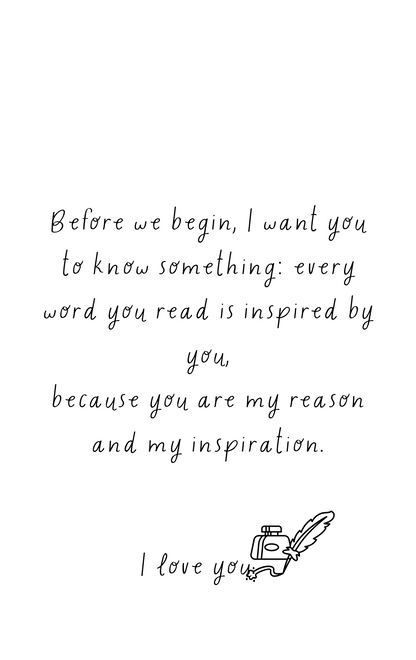 Before we begin, I want you
to know something: every
word you read is inspired by
you,
because you are my reason
and my inspiration.
I love you.